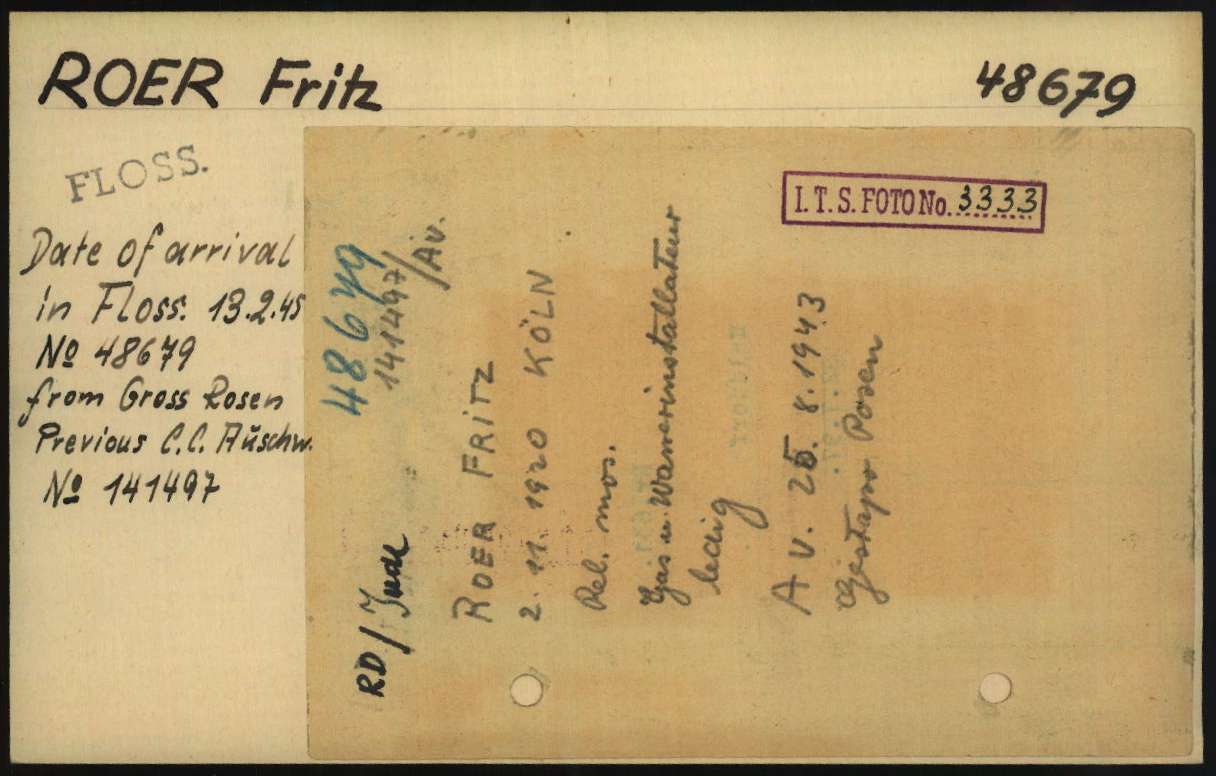 ROER Fritz 48679
FLOSS.
Date of arrival
in Floss. 13.2.45
No 48679
from Gross Rosen
Previous C.C. Auschw.
No 141497
I.T.S. FOTO No. 3333
48679
RD/Jude 141497/Av.
ROER FRITZ
2. 11. 1920 KÖLN
Rel. mos.
Gas u. Wasserinstallateur
ledig
AV. 25. 8. 1943
Gestapo Posen